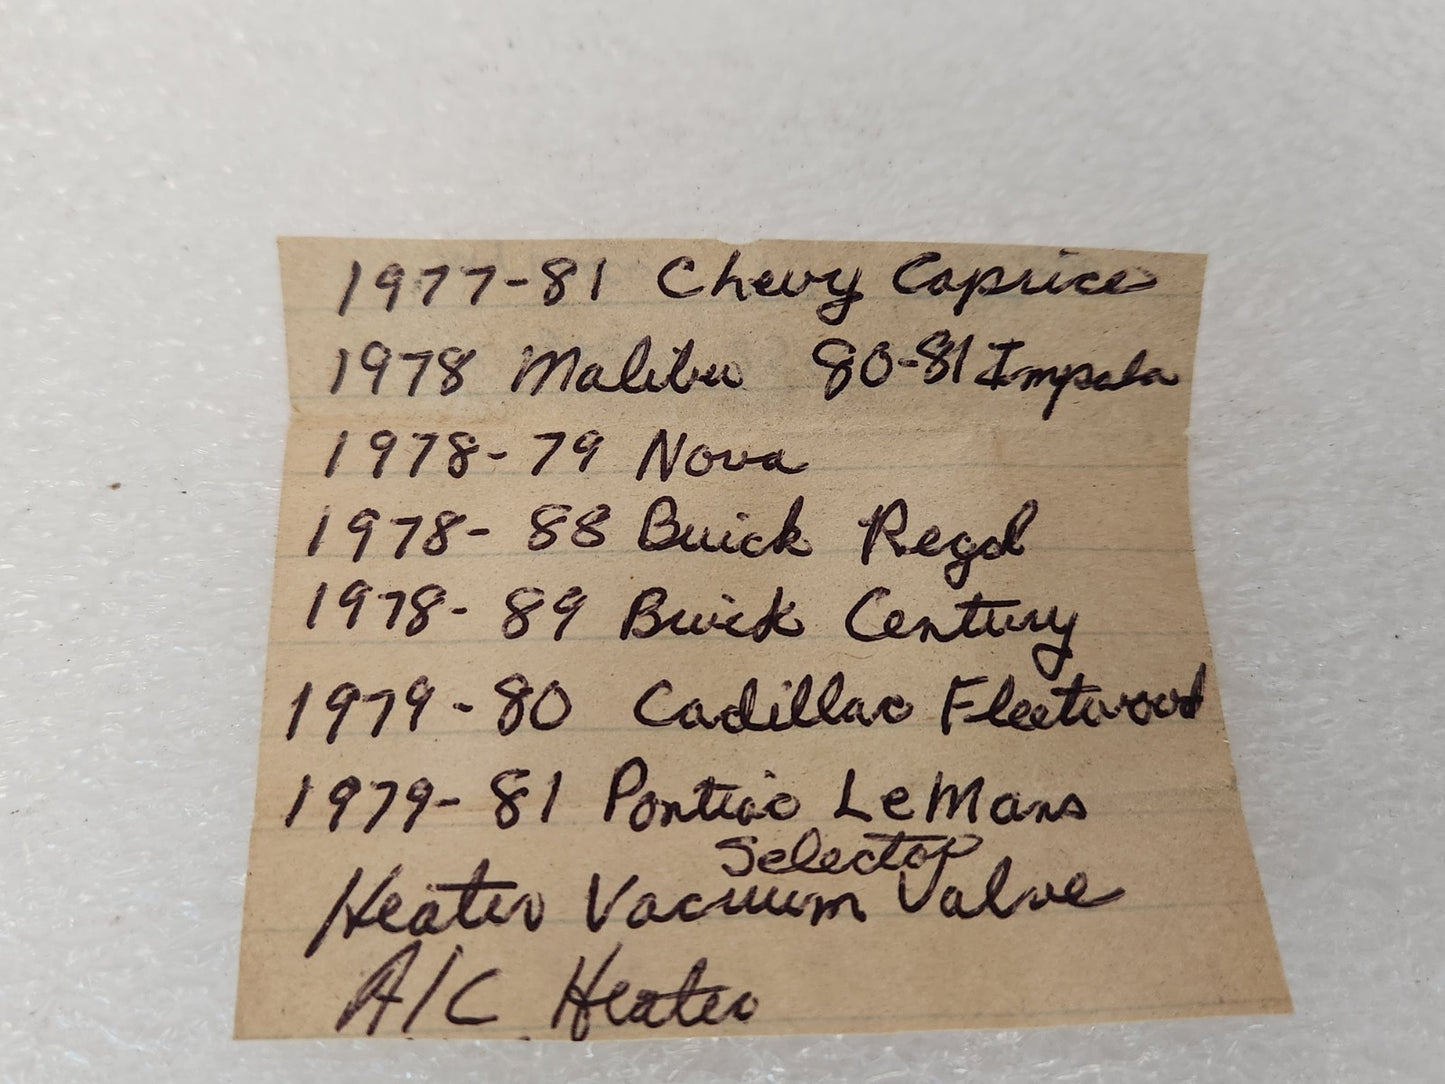 1977-81 Chevy Caprice
1978 Malibu 80-81 Impala
1978-79 Nova
1978-88 Buick Regal
1978-89 Buick Century
1979-80 Cadillac Fleetwood
1979-81 Pontiac LeMans
Selector
Heater Vacuum Valve
A/C Heater